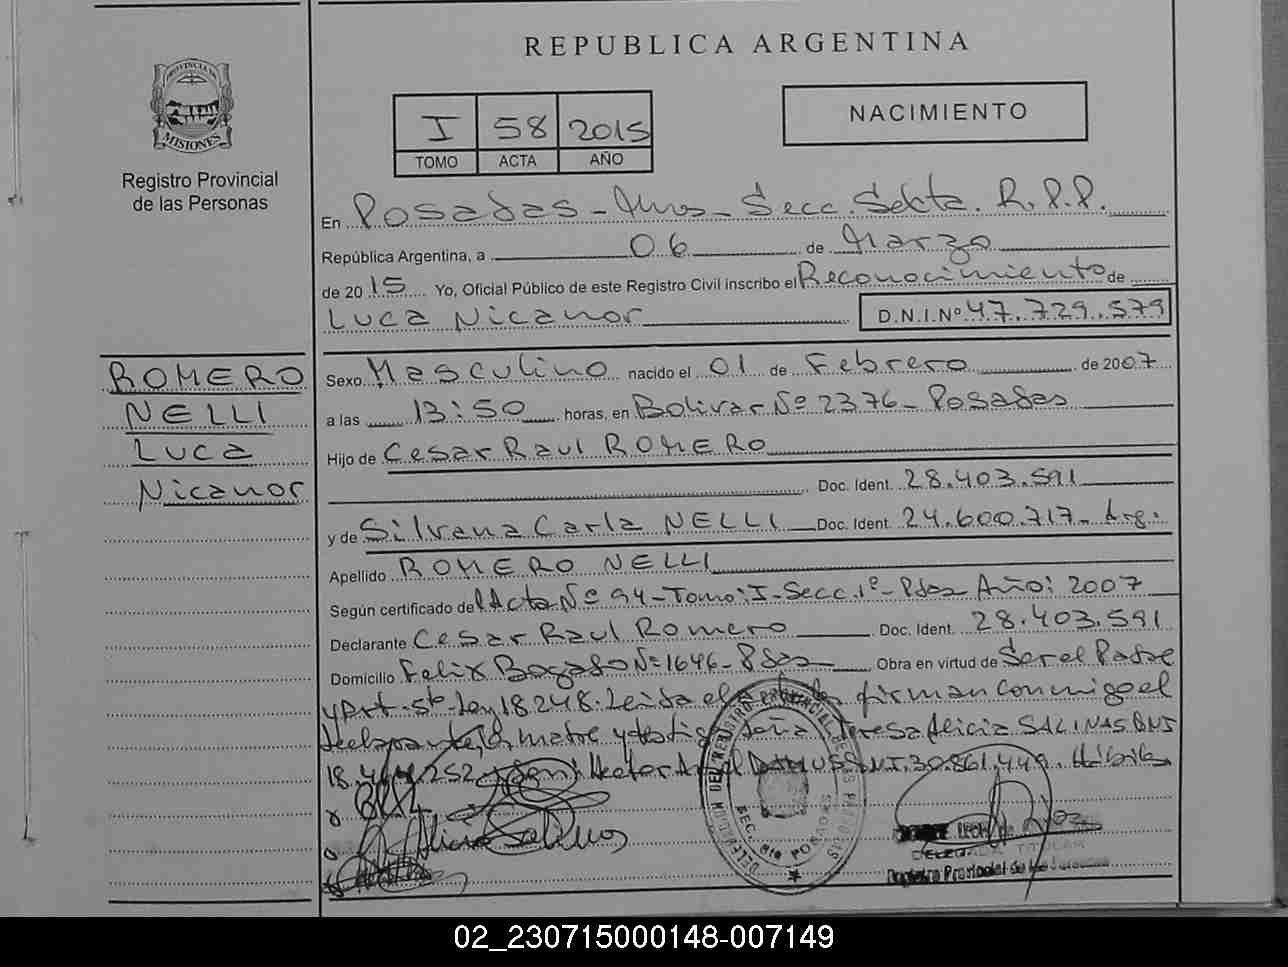 REPUBLICA ARGENTINA
PROVINCIA DE
MISIONES
Registro Provincial
de las Personas
I 58 2015
TOMO ACTA AÑO
NACIMIENTO
En Posadas - Mnes - Secc. Sexta. R.P.P.
República Argentina, a 06 de Marzo
de 2015 Yo, Oficial Público de este Registro Civil inscribo el Reconocimiento de
Luca Nicanor D.N.I.Nº 47.729.579
ROMERO
NELLI
Luca
Nicanor
Sexo Masculino nacido el 01 de Febrero de 2007
a las 13:50 horas, en Bolivar Nº 2376 - Posadas
Hijo de Cesar Raul ROMERO
Doc. Ident. 28.403.591
y de Silvana Carla NELLI Doc. Ident. 24.600.717 - Arg.
Apellido ROMERO NELLI
Según certificado del Acta Nº 94 - Tomo: I - Secc. 1º - Pdas Año: 2007
Declarante Cesar Raul Romero Doc. Ident. 28.403.591
Domicilio Felix Bogado Nº 1646 - Pdas Obra en virtud de Ser el Padre
y Art. 5to Ley 18.248. Leida el firman conmigo el
declarante, la madre y testigos doña Teresa Alicia SALINAS DNI
18. 252 Hector DNI. 30.861.449.
Alicia Salinas
DEL REGISTRO PROVINCIAL DE LAS PERSONAS
SEC. 6ta POSADAS
TITULAR
Registro Provincial de las Personas
02_230715000148-007149